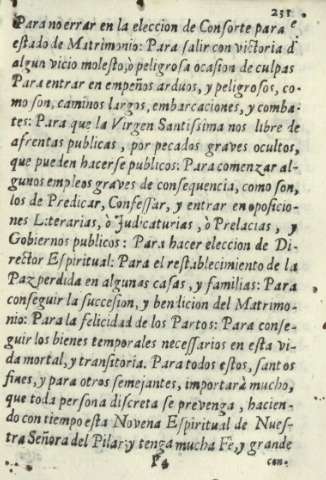 231
Para no errar en la eleccion de Consorte para
estado de Matrimonio: Para salir con victoria d
algun vicio molesto, ò peligrosa ocasion de culpas
Para entrar en empeños arduos, y peligrosos, co-
mo son, caminos largos, embarcaciones, y comba-
tes: Para que la Virgen Santissima nos libre de
afrentas publicas, por pecados graves ocultos,
que pueden hacerse publicos: Para comenzar al-
gunos empleos graves de consequencia, como son,
los de Predicar, Confessar, y entrar en oposicio-
nes Literarias, ò Judicaturias, ò Prelacias, y
Gobiernos publicos: Para hacer eleccion de Di-
rector Espiritual: Para el restablecimiento de la
Paz perdida en algunas casas, y familias: Para
conseguir la succesion, y bendicion del Matrimo-
nio: Para la felicidad de los Partos: Para conse-
guir los bienes temporales necessarios en esta vi-
da mortal, y transitoria. Para todos estos, santos
fines, y para otros semejantes, importarà mucho,
que toda persona discreta se prevenga, hacien-
do con tiempo esta Novena Espiritual de Nues-
tra Señora del Pilar, y tenga mucha Fè, y grande
P4 con-